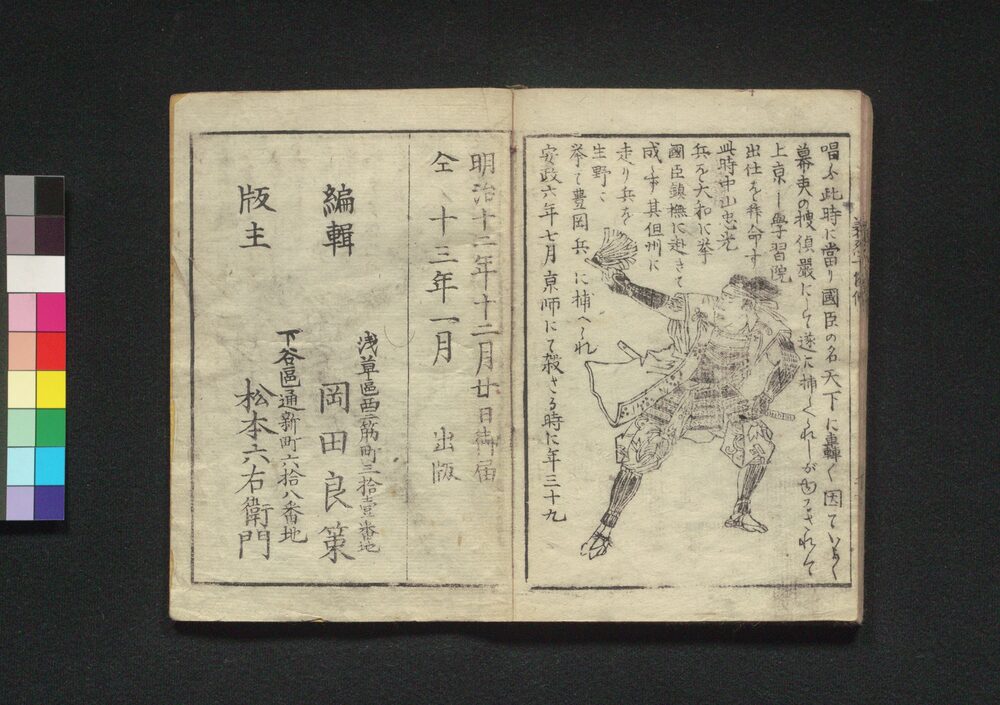 唱ふ此時に當り國臣の名天下に轟く因ていよ〱
幕吏の捜偵嚴にして遂に捕くれしが
上京し學習院
出仕を拝命す
此時中山忠光
兵を大和に挙
國臣鎮撫に赴きて
成らず其但州に
走り兵を
生野に
挙て豊岡兵に捕へられ
安政六年七月京師にて殺さる時に年三十九
明治十二年十二月廿日御届
仝十三年一月 出版
淺草區西三筋町三拾壹番地
編輯 岡田良策
下谷區通新町六拾八番地
版主 松本六右衛門